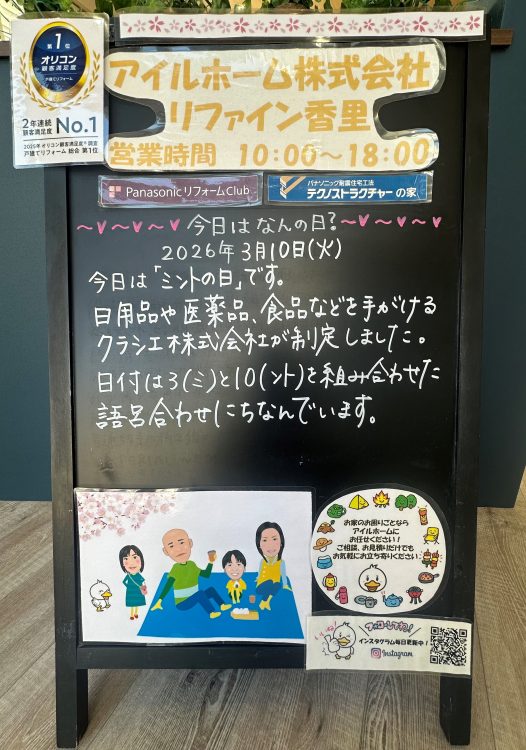 第1位
オリコン
顧客満足度
戸建てリフォーム
2年連続
顧客満足度 No.1
2025年 オリコン顧客満足度®調査
戸建てリフォーム 総合 第1位
アイルホーム株式会社
リファイン香里
営業時間 10:00～18:00
Panasonic リフォームClub
パナソニック耐震住宅工法
テクノストラクチャーの家
～♥～♥～♥今日はなんの日?～♥～♥～♥～
2026年3月10日(火)
今日は「ミントの日」です。
日用品や医薬品、食品などを手がける
クラシエ株式会社が制定しました。
日付は3(ミ)と10(ント)を組み合わせた
語呂合わせにちなんでいます。
お家のお困りごとなら
アイルホームに
お任せください!
ご相談、お見積りだけでも
お気軽にお立ち寄りください
フォローしてね!
インスタグラム毎日更新中!
Instagram